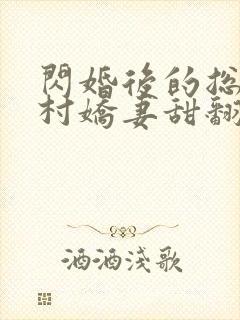 閃婚後的总
村嬌妻甜翻
酒酒淺歌